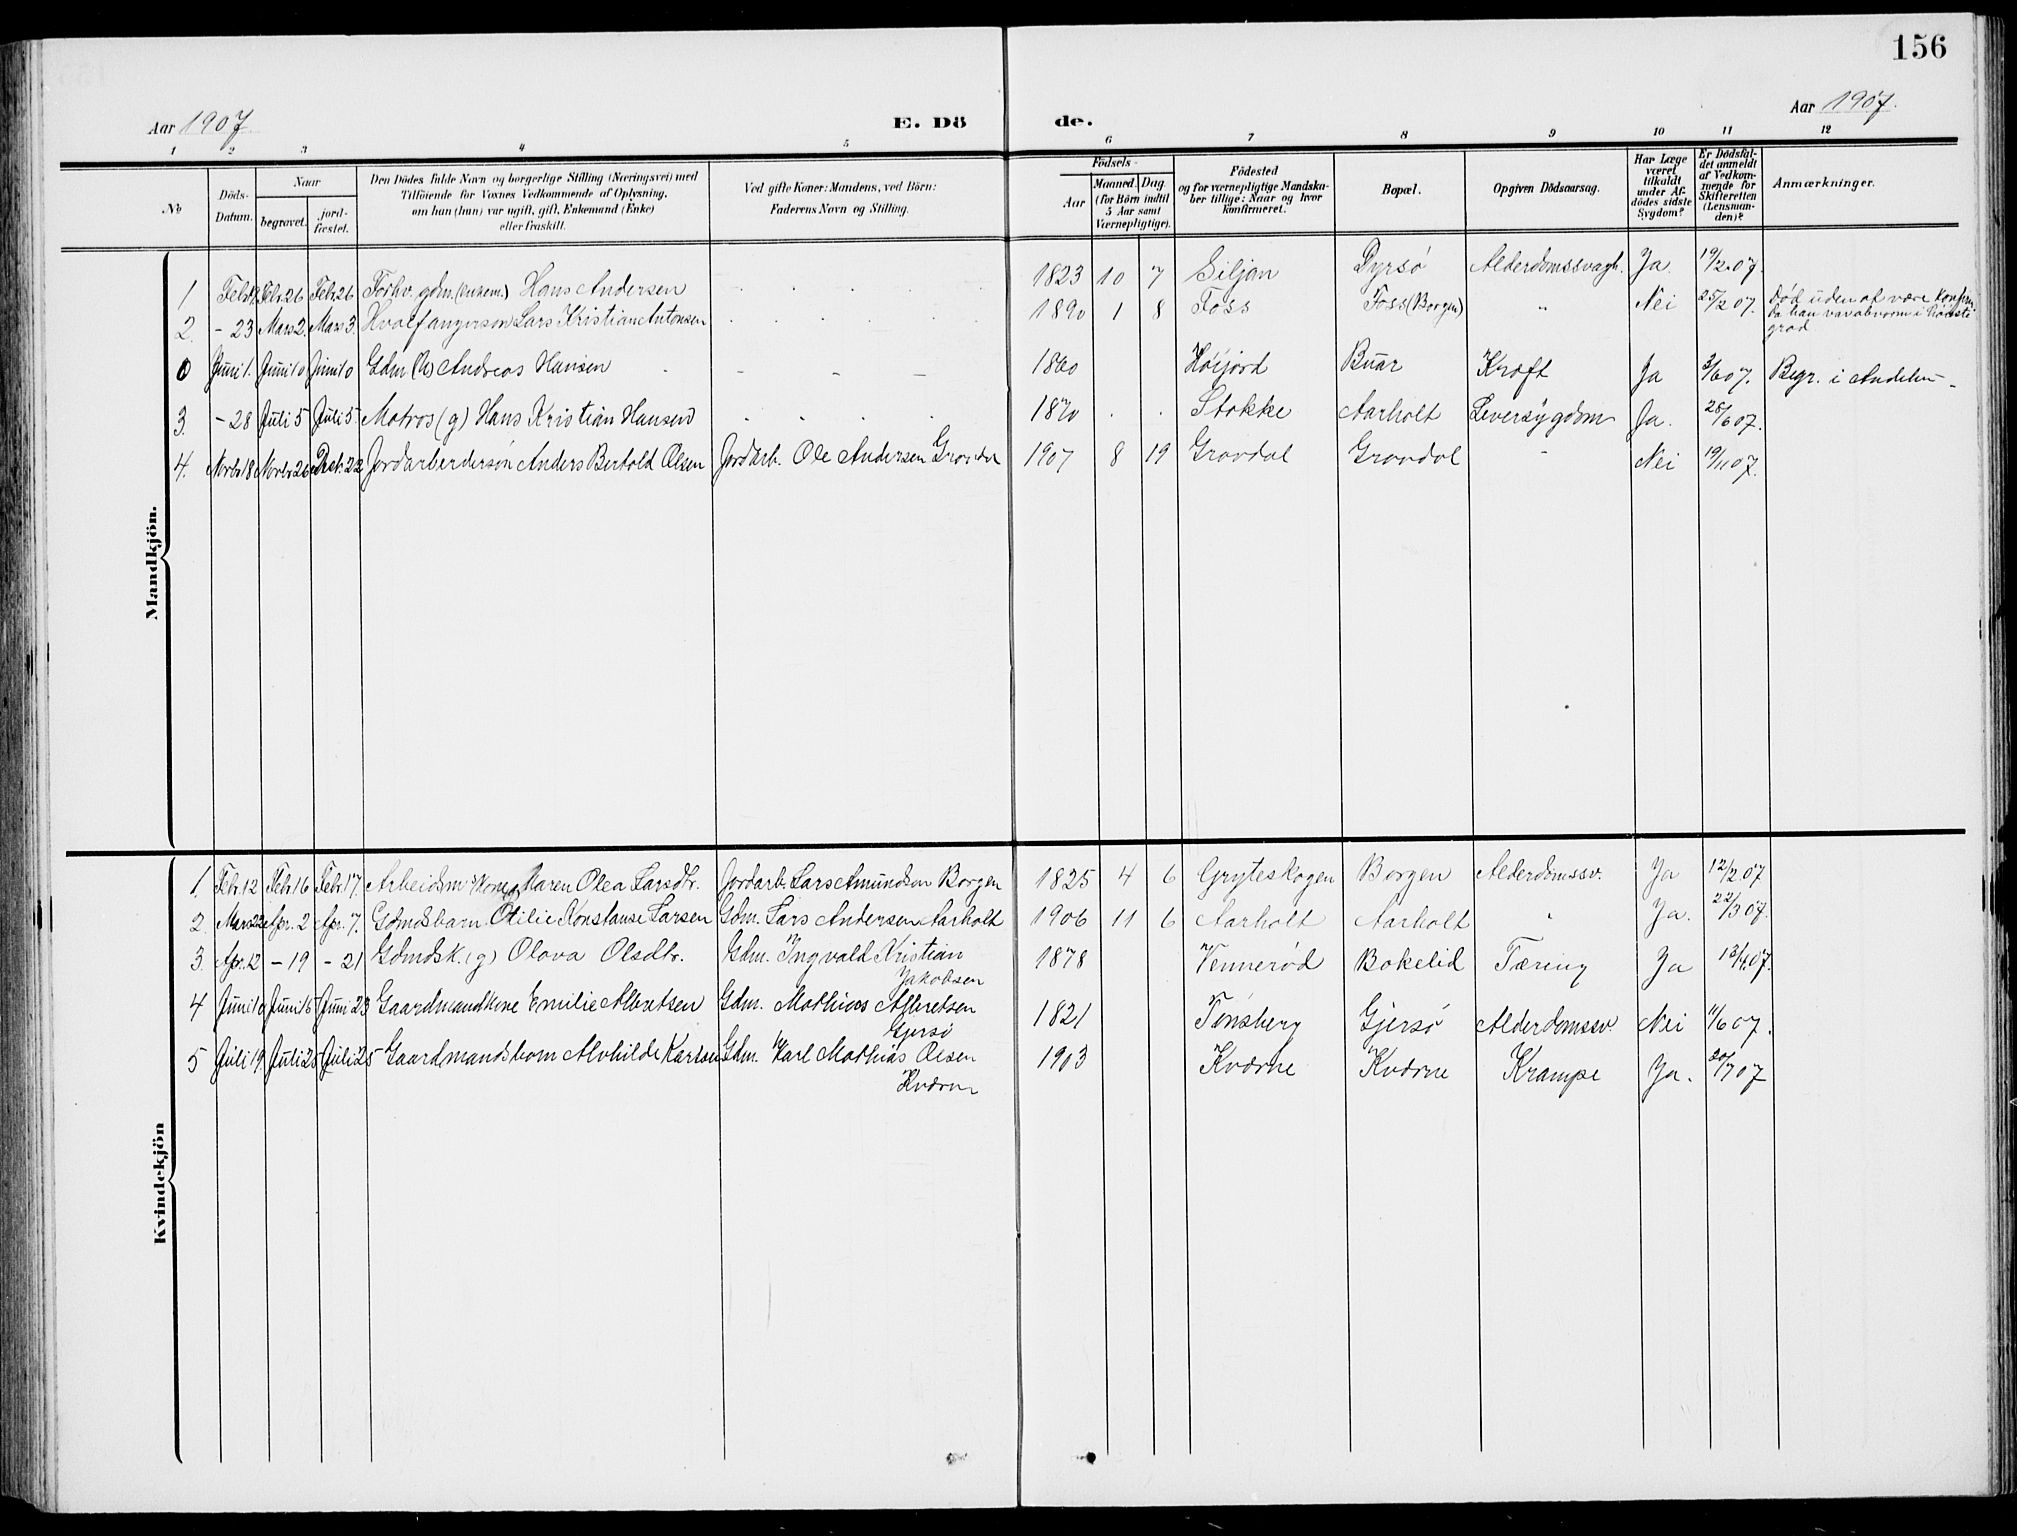 156
Aar 1907
E. Dö
de.
Aar 1907.
1 2 3 4 5 6 7 8 9 10 11 12
No
Döds-
Datum.
Naar
begravet.
jord-
fæstet.
Den Dödes fulde Navn og borgerlige Stilling (Næringsvei) med
Tilföiende for Voxnes Vedkommende af Oplysning,
om han (hun) var ugift, gift, Enkemand (Enke)
eller fraskilt.
Ved gifte Koner: Mandens, ved Börn:
Faderens Navn og Stilling.
Födsels-
Aar
Maaned. Dag.
(for Børn indtil
5 Aar samt
Værnepligtige).
Födested
og for værnepligtige Mandska-
ber tillige: Naar og hvor
konfirmeret.
Bopæl.
Opgiven Dödsaarsag.
Har Læge
været
tilkaldt
under Af-
dödes sidste
Sygdom?
Er Dödsfal-
det anmeldt
af Vedkom-
mende for
Skifteretten
(Lensman-
den)?
Anmærkninger.
Mandkjön.
1 Febr. 19 Febr. 26 Febr. 26 Forhv. gdm. (enkem.) Hans Andersen 1823 10 7 Siljan Dyrsø Alderdomssvagh. Ja. 19/2 07.
2. - 23 Mars 2. Mars 3. Hvalfangerson Lars Kristian Antonsen 1890 1 8 Foss Foss (Borgen) " Nei 25/2 07. Død uden at være konfirm.
Da han var abnorm i høieste
grad
0 Juni 1. Juni 10 Juni 10 Gdm (g) Andreas Hansen - - - - 1860 Høijord Buar Kræft Ja 3/6 07. Begr. i Andebu -
3. - 28 Juli 5 Juli 5. Matros (g) Hans Kristian Hansen 1870 Stokke Aarholt Leversygdom Ja. 28/6 07.
4. Novbr. 18 Novbr. 26 Decbr. 22 Jordarbeidersøn Anders Bertold Olsen Jordarb. Ole Andersen Gravdal 1907 8 19 Gravdal Gravdal - Nei 19/11 07.
Kvindekjön
1. Febr. 12 Febr. 16 Febr. 17. Arbeidsm. kone Maren Olea Larsdtr. Jordarb. Lars Amundsen Borgen 1825 4 6 Gryteskogen Borgen Alderdomssv. Ja 12/2 07
2. Mars 23 Apr. 2 Apr. 7. Gdmdsbarn Otilie Konstanse Larsen Gdm. Lars Andersen Aarholt 1906 11 6 Aarholt Aarholt " Ja. 22/3 07.
3. Apr. 12 - 19 - 21 Gdmdsk. (g) Olava Olsdtr. Gdm. Ingvald Kristian
Jakobsen
1878 Vennerød Bakelid Tæring Ja 13/4 07.
4 Juni 10 Juni 15 Juni 23 Gaardmandkone Emilie Albretsen Gdm. Mathias Albretsen
Gjersø
1821 Tønsberg Gjersø Alderdomssv. Nei 11/6 07.
5 Juli 19. Juli 25 Juli 25 Gaardmandsbarn Alvhilde Karlsen Gdm. Karl Mathias Olsen
Kværne
1903 Kværne Kværne Krampe Ja. 20/7 07